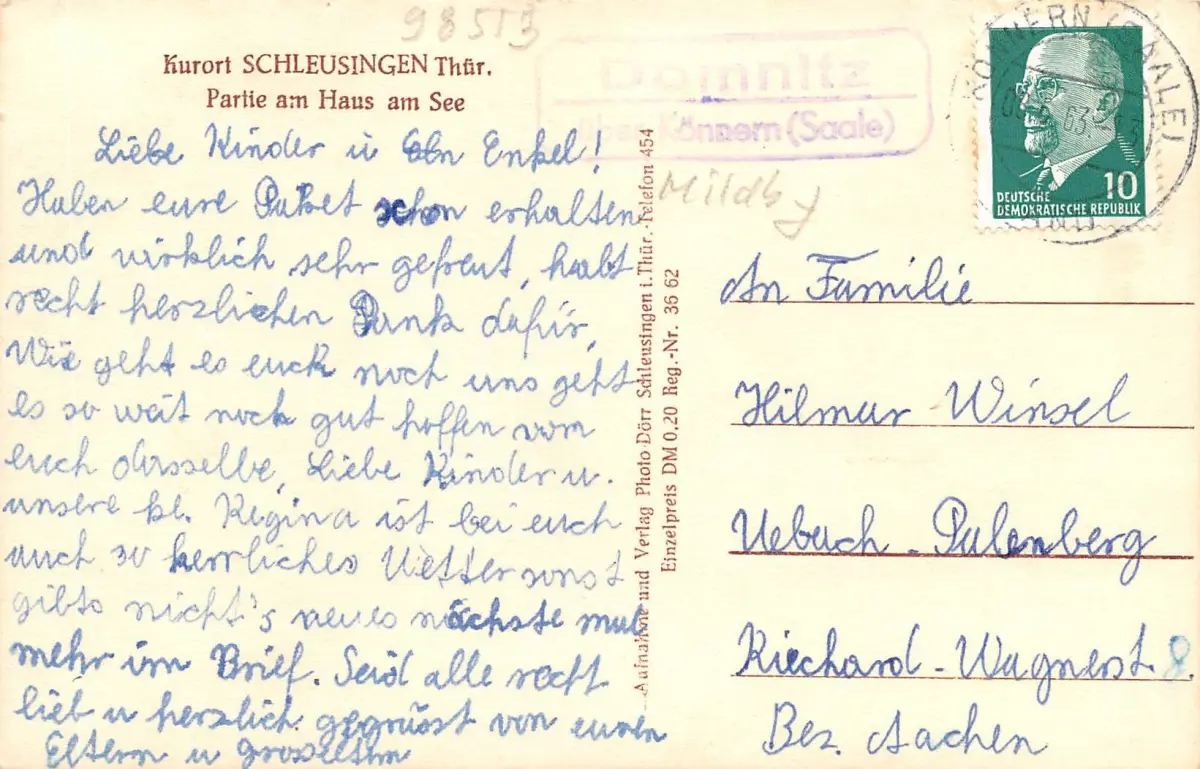 98553
Kurort SCHLEUSINGEN Thür.
Partie am Haus am See
Liebe Kinder u Enkel!
Haben eure Paket schon erhalten
und wirklich sehr gefreut, habt
recht herzlichen Dank dafür,
Wie geht es euch noch uns geht
es so weit noch gut hoffen vom
euch dasselbe, Liebe Kinder u.
unsere kl. Regina ist bei euch
auch so herrliches Wetter sonst
gibts nicht's neues nächste mal
mehr im Brief. Seid alle recht
lieb u herzlich gegrüsst von euren
Eltern u Grosseltern
Aufnahme und Verlag Photo-Dörr Schleusingen i. Thür. · Telefon 454
Einzelpreis DM 0,20 Reg.-Nr. 36 62
Domnitz
über Könnern (Saale)
KÖNNERN (SAALE)
DEUTSCHE
DEMOKRATISCHE REPUBLIK
10
An Familie
Hilmar Winsel
Uebach - Palenberg
Riechard - Wagnerst 8.
Bez. Aachen